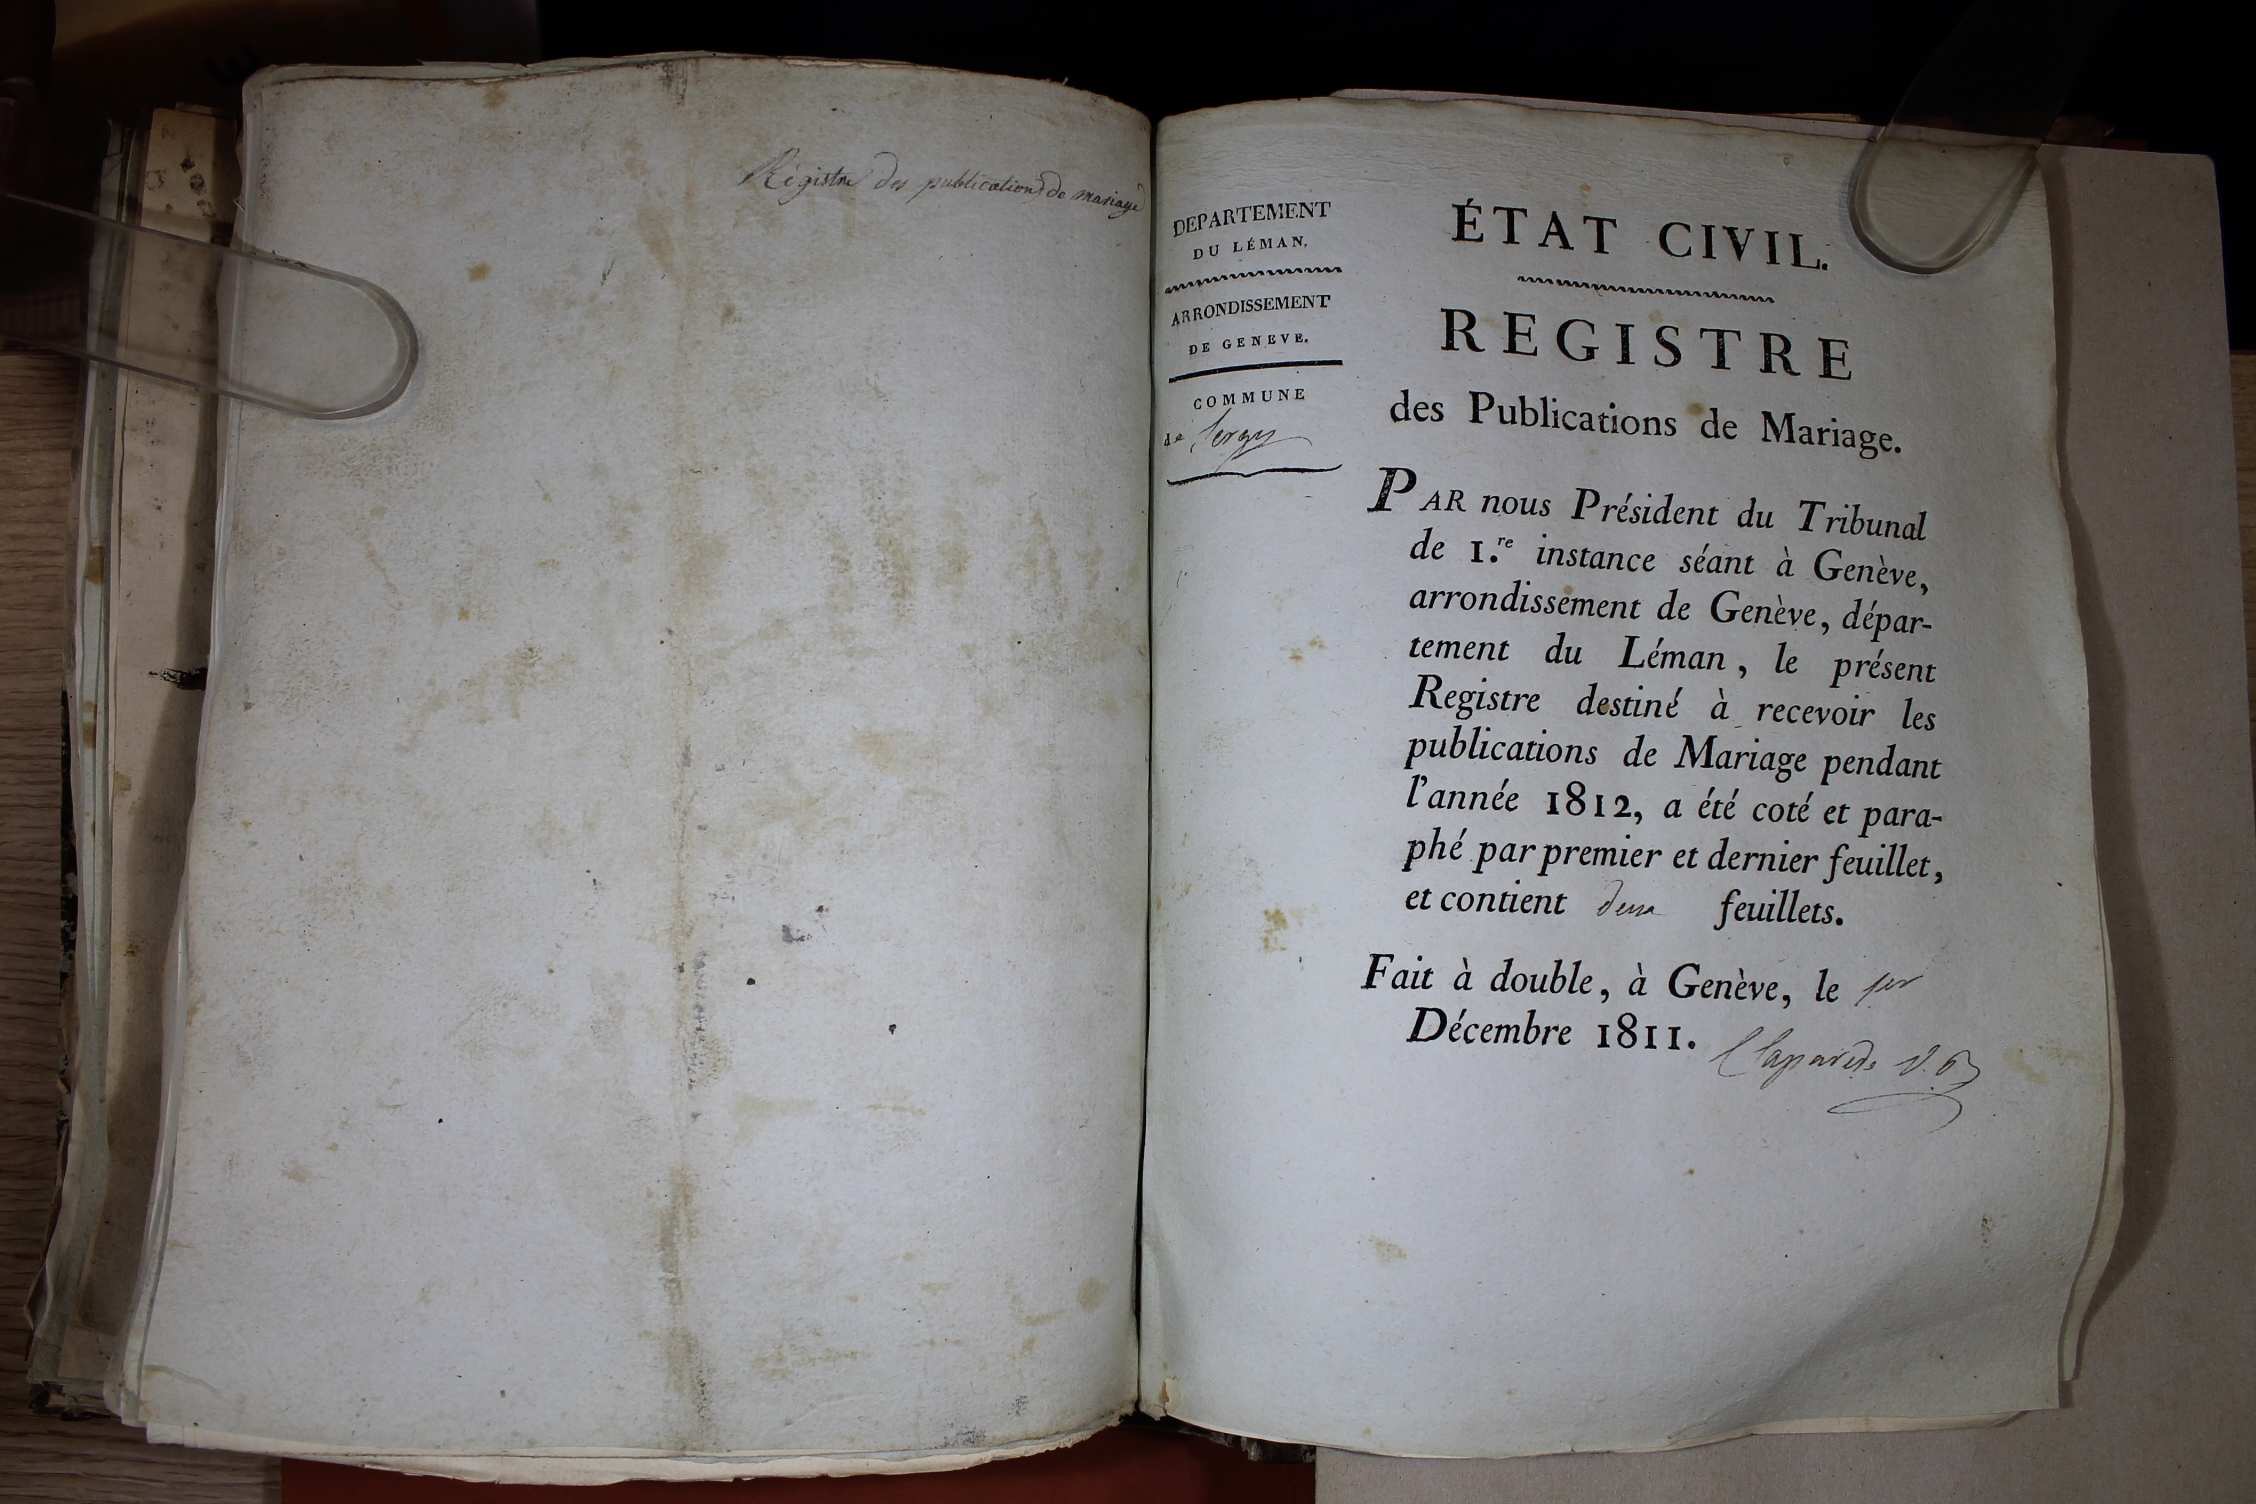 Régistre des publications de mariage
DEPARTEMENT
DU LÉMAN.
ARRONDISSEMENT
DE GENEVE.
COMMUNE
de Sergy
ÉTAT CIVIL.
REGISTRE
des Publications de Mariage.
PAR nous Président du Tribunal
de 1.re instance séant à Genève,
arrondissement de Genève, dépar-
tement du Léman, le présent
Registre destiné à recevoir les
publications de Mariage pendant
l'année 1812, a été coté et para-
phé par premier et dernier feuillet,
et contient deux feuillets.
Fait à double, à Genève, le per
Décembre 1811.
Claparede V. P